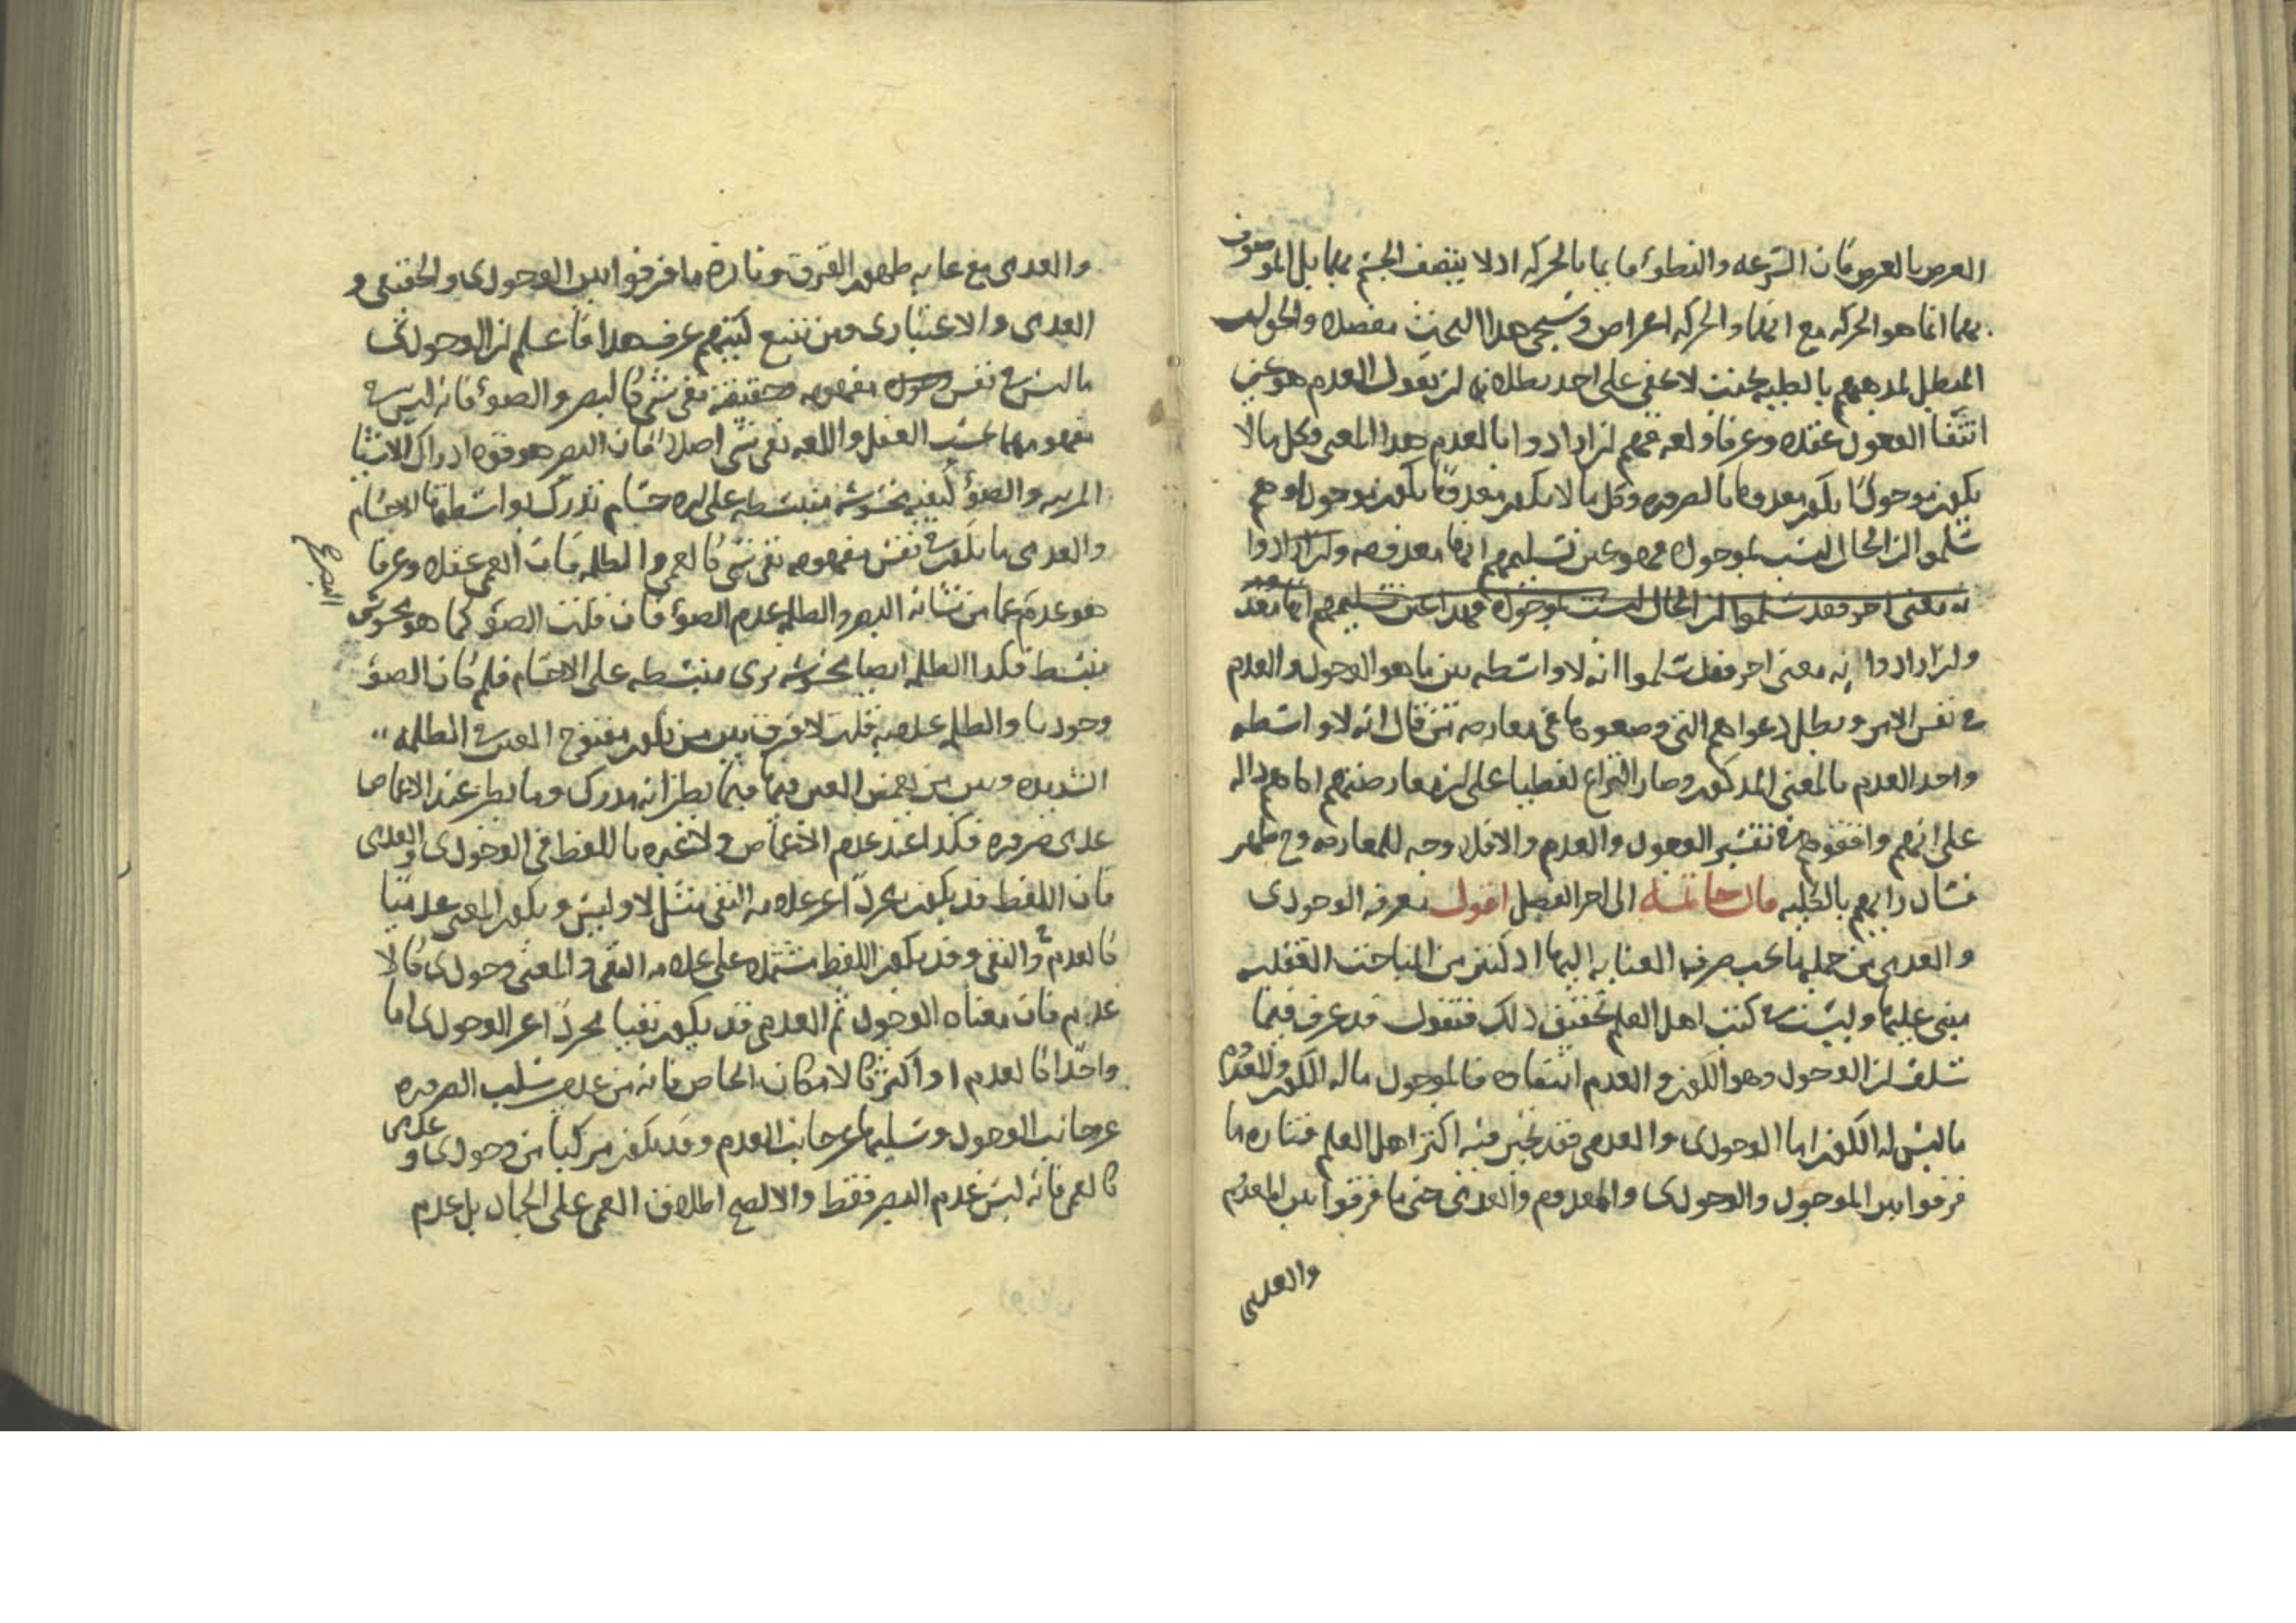 العرض بالعرض فان السرعه والبطؤ قائمان بالحركه اذ لا يتصف الجسم بهما بل الموصوف
بهما انما هو الحركه مع انهما والحركه اعراض وسيجئ هذا البحث مفصلا والجواب
المبطل لمذهبهم بالكليه بحيث لا يخفى على احد بطلانه ان نقول العدم هو عين
انتفا الوجود عقلا وعرفا ولغه فهم ان ارادوا بالعدم هذا المعنى وكل ما لا
يكون موجودا يكون معدوما بالضروره وكل ما لا يكون معدوما يكون موجودا وهم
سلموا ان الحال ليست بموجوده فهو عين تسليمهم انها معدومه وان ارادوا
به معنى اخر فقد سلموا ان الحال ليست بموجوده فهذا عين تسليمهم انها معدومه
وان ارادوا به معنى اخر فقد سلموا انه لا واسطه بين ما هو الوجود والعدم
في نفس الامر وبطل دعواهم التي وضعوها في معارضه من قال انه لا واسطه
واخذ العدم بالمعنى المذكور وصار النزاع لفظيا على ان معارضتهم اياهم داله
على انهم وافقوهم في تفسير الوجود والعدم والا فلا وجه للمعارضه وح ظهر
فساد رايهم بالكليه قال خاتمه الى اخر الفصل اقول معرفه الوجودى
والعدمى من جمله ما يجب صرف العنايه اليها اذ كثير من المباحث العقليه
مبنى عليها وليست في كتب اهل العلم تحقيق ذلك فنقول قد عرف فيما
سلف ان الوجود وهو الكون والعدم انتفاؤه فالموجود ما له الكون والمعدوم
ما ليس له الكون اما الوجودى والعدمى فقد تحير فيه اكثر اهل العلم فتاره ما
فرقوا بين الموجود والوجودى والمعدوم والعدمى حتى ما فرقوا بين المعدوم
والعدمى
والعدمى مع غايه ظهور الفرق وتارة ما فرقوا بين الوجودى والحقيقى و
العدمى والاعتبارى ومن تتبع كتبهم عرف هذا فاعلم ان الوجودى
ما ليس في نفس مفهومه حقيقته نفى شئ كالبصر والضوء فانه ليس في
مفهومهما بحسب العقل واللغه نفى شئ اصلا فان البصر هو قوه ادراك الاشيا
المرئيه والضوء كيفيه محسوسه منبسطه على الاجسام تدرك بواسطتها الاجسام
والعدمى ما يكون في نفس مفهومه نفى شئ كالعمى والظلمه فان العمى عقلا وعرفا
البصر صح
هو عدم عما من شانه البصر والظلمه عدم الضوء فان قلت الضوء كما هو محسوس
منبسط فكذا الظلمه ايضا محسوسه يرى منبسطه على الاجسام فلم كان الضوء
وجوديا والظلمه عدميه قلت لا فرق بين من يكون مفتوح العين في الظلمه
الشديده وبين من يغمض العين فيهما فيما يظن انه مدرك وما يظن عند الاغماض
عدمى ضروره فكذا عند عدم الاغماض ولا عبره باللفظ في الوجودى والعدمى
فان اللفظ قد يكون مجردا عن علامه النفى مثل لا وليس ويكون المعنى عدميا
كالعدم والنفى وقد يكون اللفظ مشتملا على علامه النفى والمعنى وجودى كالا
عدم فان معناه الوجود ثم العدمى قد يكون نفيا مجردا عن الوجودى اما
واحدا كالعدم او اكثر كالامكان الخاص فانه من عدم سلب الضروره
عن جانب الوجود وسلبها عن جانب العدم وقد يكون مركبا من وجودى وعدمى
كالعمى فانه ليس عدم البصر فقط والا لصح اطلاق العمى على الجماد بل عدم